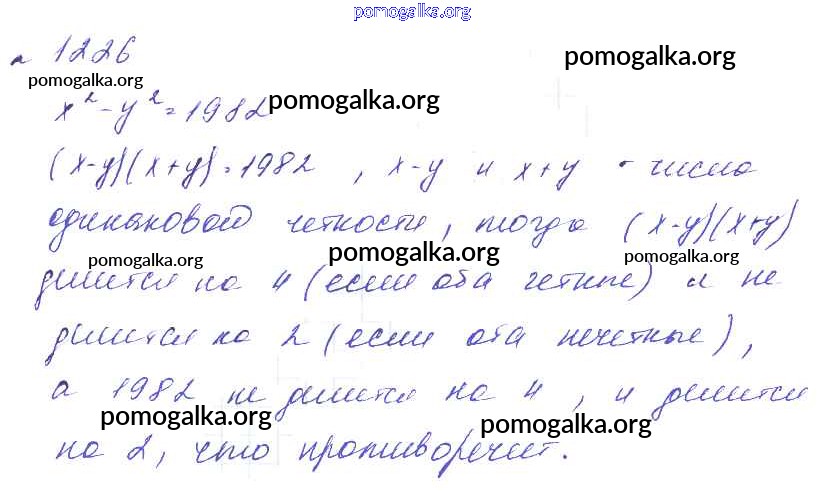 pomogalka.org
№ 1226
pomogalka.org pomogalka.org
x² - y² = 1982 pomogalka.org
(x-y)(x+y) = 1982 , x-y и x+y - числа
одинаковой четкости, тогда (x-y)(x+y)
pomogalka.org pomogalka.org pomogalka.org
делится на 4 (если оба четные) и не
делится на 2 (если оба нечетные),
а 1982 не делится на 4 , и делится
pomogalka.org pomogalka.org
на 2, что противоречит.